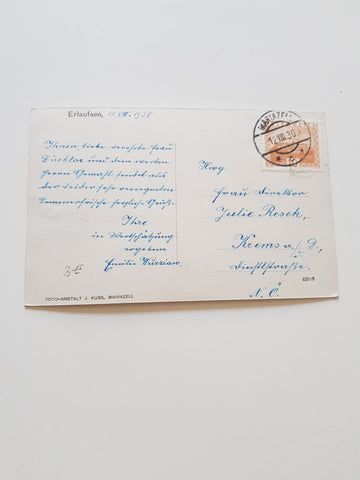 Erlaufsee, 11. VIII. 1930
Ihnen liebe verehrte Frau
Direktor und dem werten
Herrn Gemahl sendet aus
der leider sehr verregneten
Sommerfrische herzliche Grüße
Ihre
in Wertschätzung
ergebene
Emilie
3-E
FOTO-ANSTALT J. KUSS, MARIAZELL
MARIAZELL
12.VIII.30
Hwg.
Frau Direktor
Julie Resch,
Krems a/D,
Dinstlstraße
N. Ö.